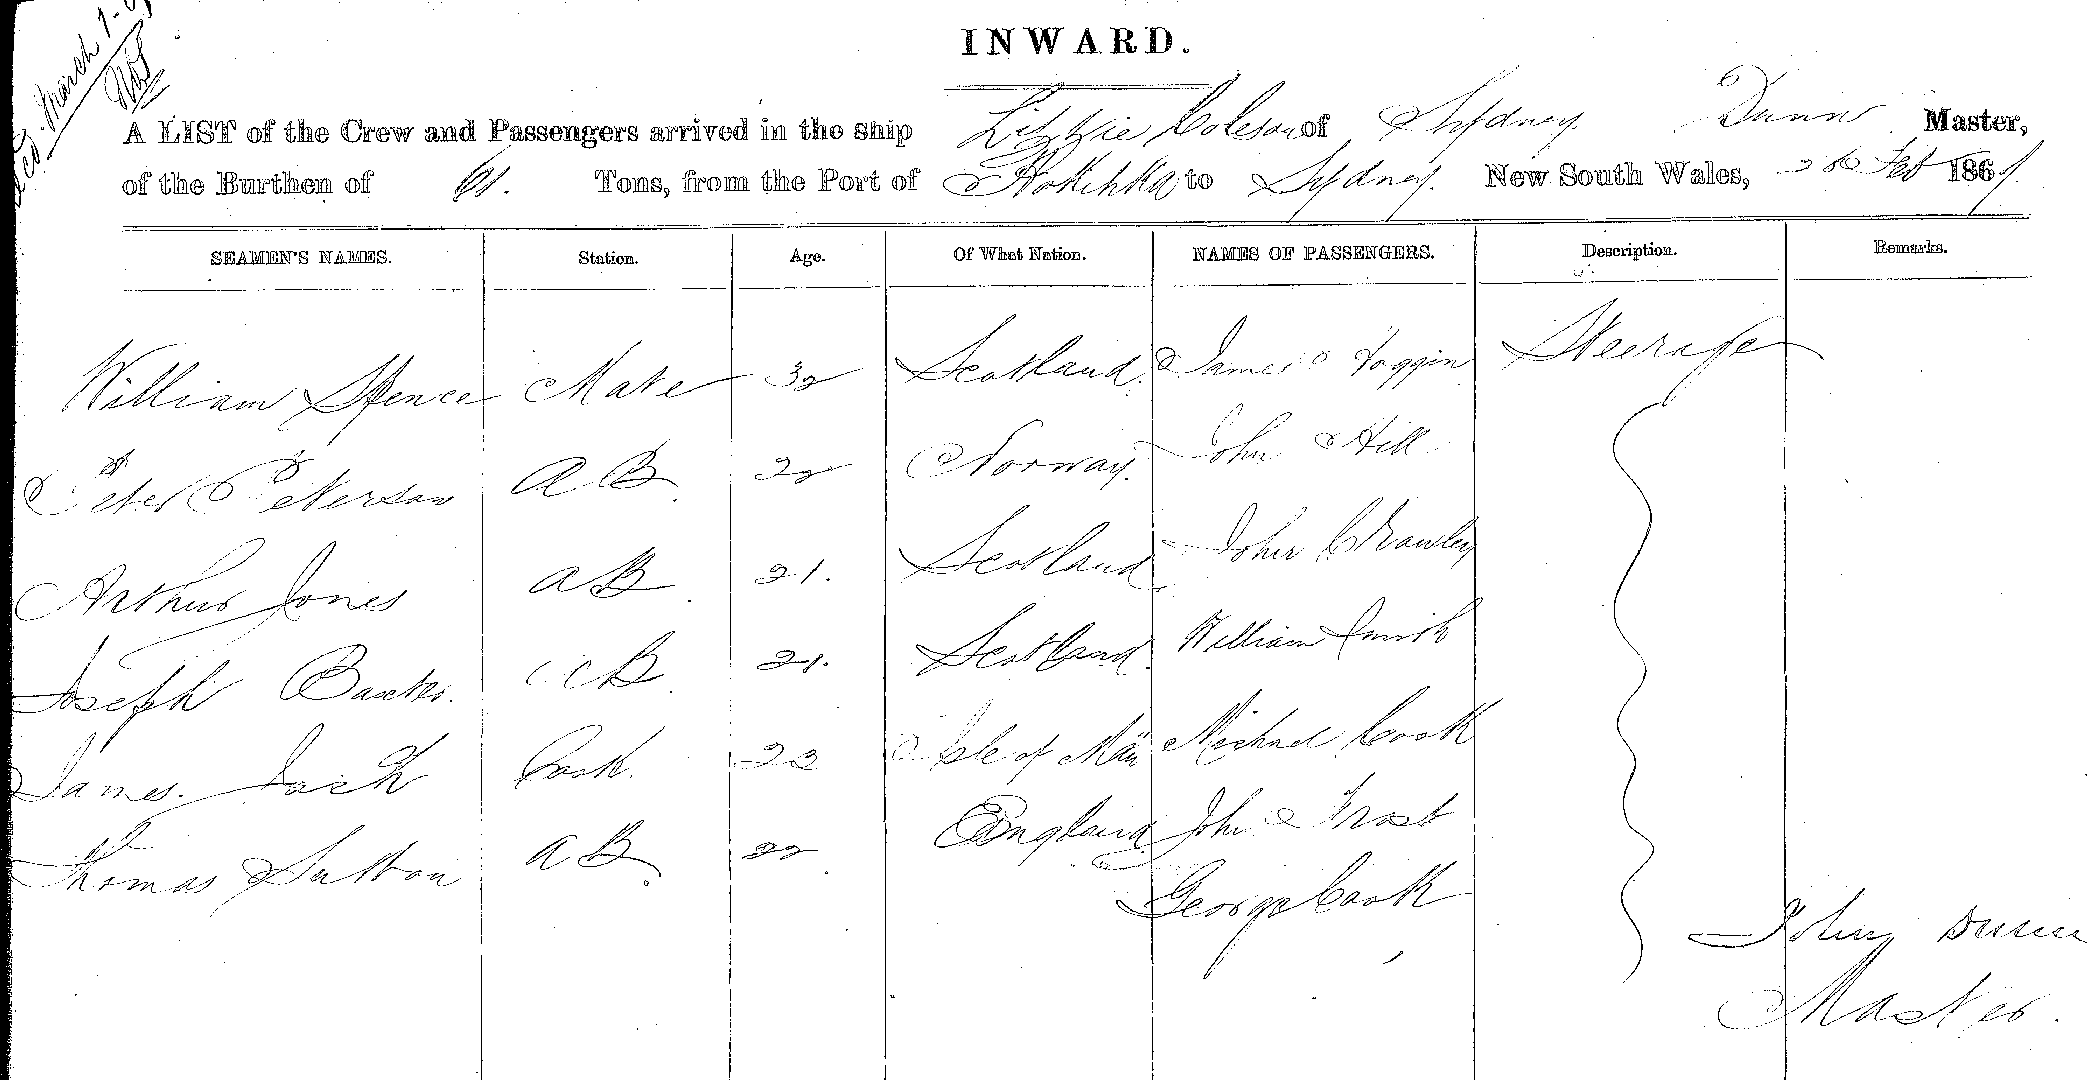 March 1
INWARD.
A LIST of the Crew and Passengers arrived in the ship Lizzie Coleson of Sydney Dunn Master,
of the Burthen of 61. Tons, from the Port of Hokitika to Sydney. New South Wales, 28 Feb 1867
SEAMEN'S NAMES. Station. Age. Of What Nation. NAMES OF PASSENGERS. Description. Remarks.
William Spence Mate 32 Scotland. James Foggin Steerage
Peter Peterson A B 22 Norway. John Hill
Arthur Jones A B 21. Scotland John Crawley
Joseph Baxter. A B 21. Scotland William Smith
James. Jack Cook. 23 Isle of Man Michael Cook
Thomas Sutton A B. 22 England John Frost
George Cook
John Dunn
Master.